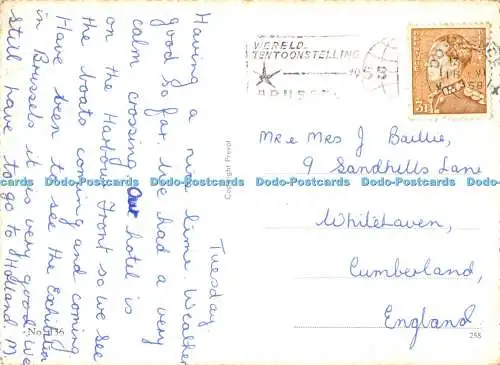 Tuesday
Having a nice time. Weather
good so far. We had a very
calm crossing. Our hotel is
on the Harbour Front so we see
the boats coming and coming
Have been to see the Exhibition
in Brussels it was very good. We
still have to go to Holland. M.
WERELD-
TENTOONSTELLING
1958
Mr & Mrs J Baillie,
9 Sandhills Lane
Whitehaven,
Cumberland,
England
Copyright Prevot
No.
258
Dodo-Postcards Dodo-Postcards Dodo-Postcards Dodo-Postcards